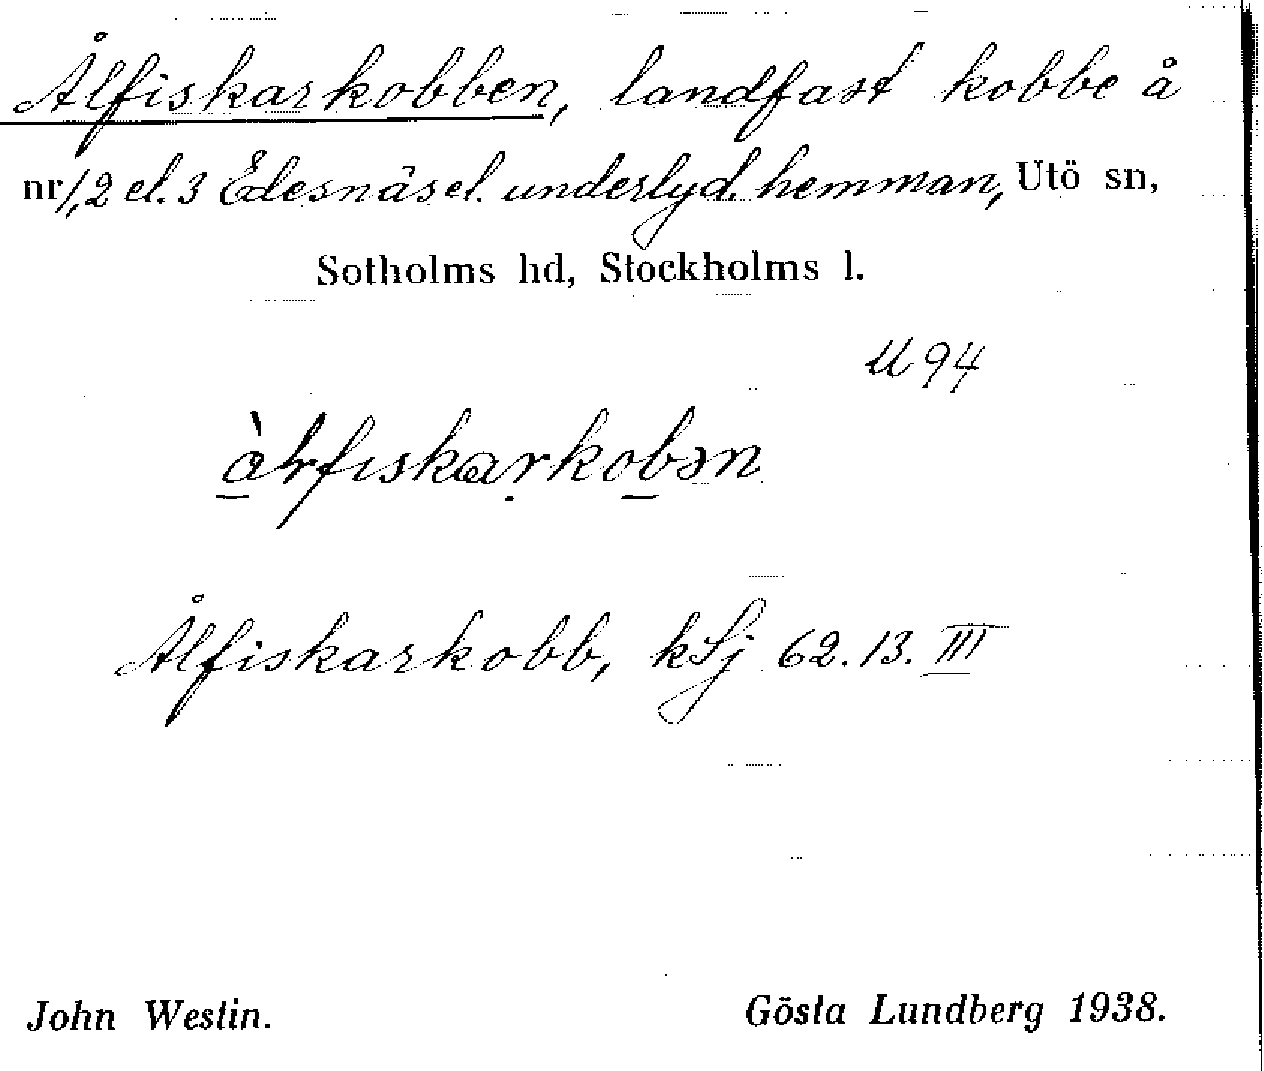 Ålfiskarkobben, landfast kobbe å
nr 1,2 el. 3 Edesnäs el. underlyd. hemman, Utö sn,
Sotholms hd, Stockholms l.
U 94
Ålfiskarkobb, kSj 62.13.III
John Westin. Gösta Lundberg 1938.